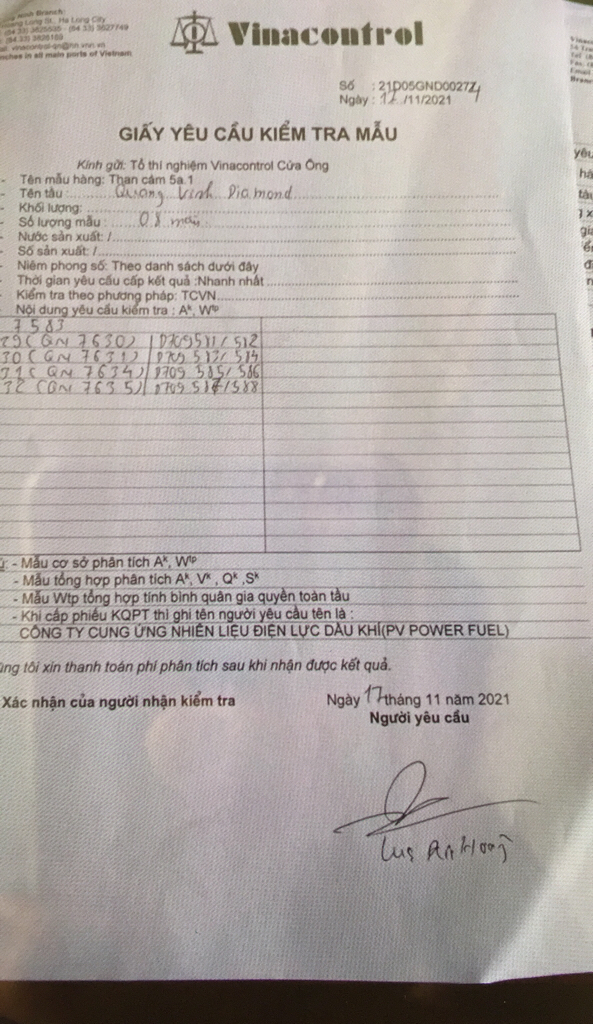 Long St., Ha Long City
vinacontrol-qn@hn.vnn.vn
in all main ports of Vietnam
Vinacontrol
Số : 21D05GND00274
Ngày : 17 /11/2021
GIẤY YÊU CẦU KIỂM TRA MẪU
Kính gửi: Tổ thí nghiệm Vinacontrol Cửa Ông
- Tên mẫu hàng: Than cám 5a.1
- Tên tàu : Quang Vinh Diamond
- Khối lượng:
- Số lượng mẫu : 08 mẫu.
- Nước sản xuất: /
- Số sản xuất: /
- Niêm phong số: Theo danh sách dưới đây
- Thời gian yêu cầu cấp kết quả :Nhanh nhất
- Kiểm tra theo phương pháp: TCVN
- Nội dung yêu cầu kiểm tra : Aᵏ, Wᵗᵖ
7583
29 ( QN 7630) 0709511/ 512
30 ( QN 7631) 0709 513/ 514
31 ( QN 7634) 0709 585/ 586
32 (QN 7635) 0709 587/588
- Mẫu cơ sở phân tích Aᵏ, Wᵗᵖ
- Mẫu tổng hợp phân tích Aᵏ, Vᵏ , Qᵏ ,Sᵏ
- Mẫu Wtp tổng hợp tính bình quân gia quyền toàn tàu
- Khi cấp phiếu KQPT thì ghi tên người yêu cầu tên là :
CÔNG TY CUNG ỨNG NHIÊN LIỆU ĐIỆN LỰC DẦU KHÍ(PV POWER FUEL)
tôi xin thanh toán phí phân tích sau khi nhận được kết quả.
Xác nhận của người nhận kiểm tra
Ngày 17 tháng 11 năm 2021
Người yêu cầu